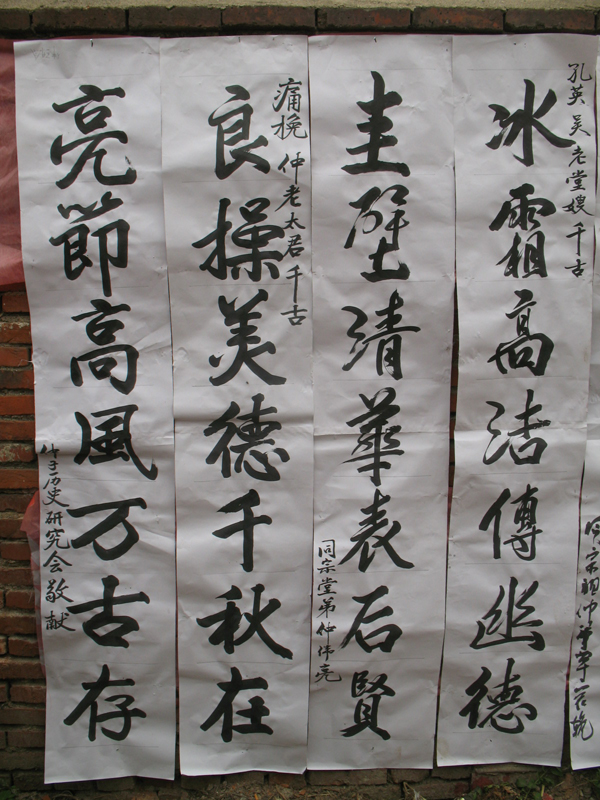 孔英吴老堂嫂千古
冰霜高洁傳幽德
圭壁清華表后賢
同宗堂弟仲伟亮
痛挽仲老太君千古
良操美德千秋在
亮節高風万古存
仲子历史研究会敬献